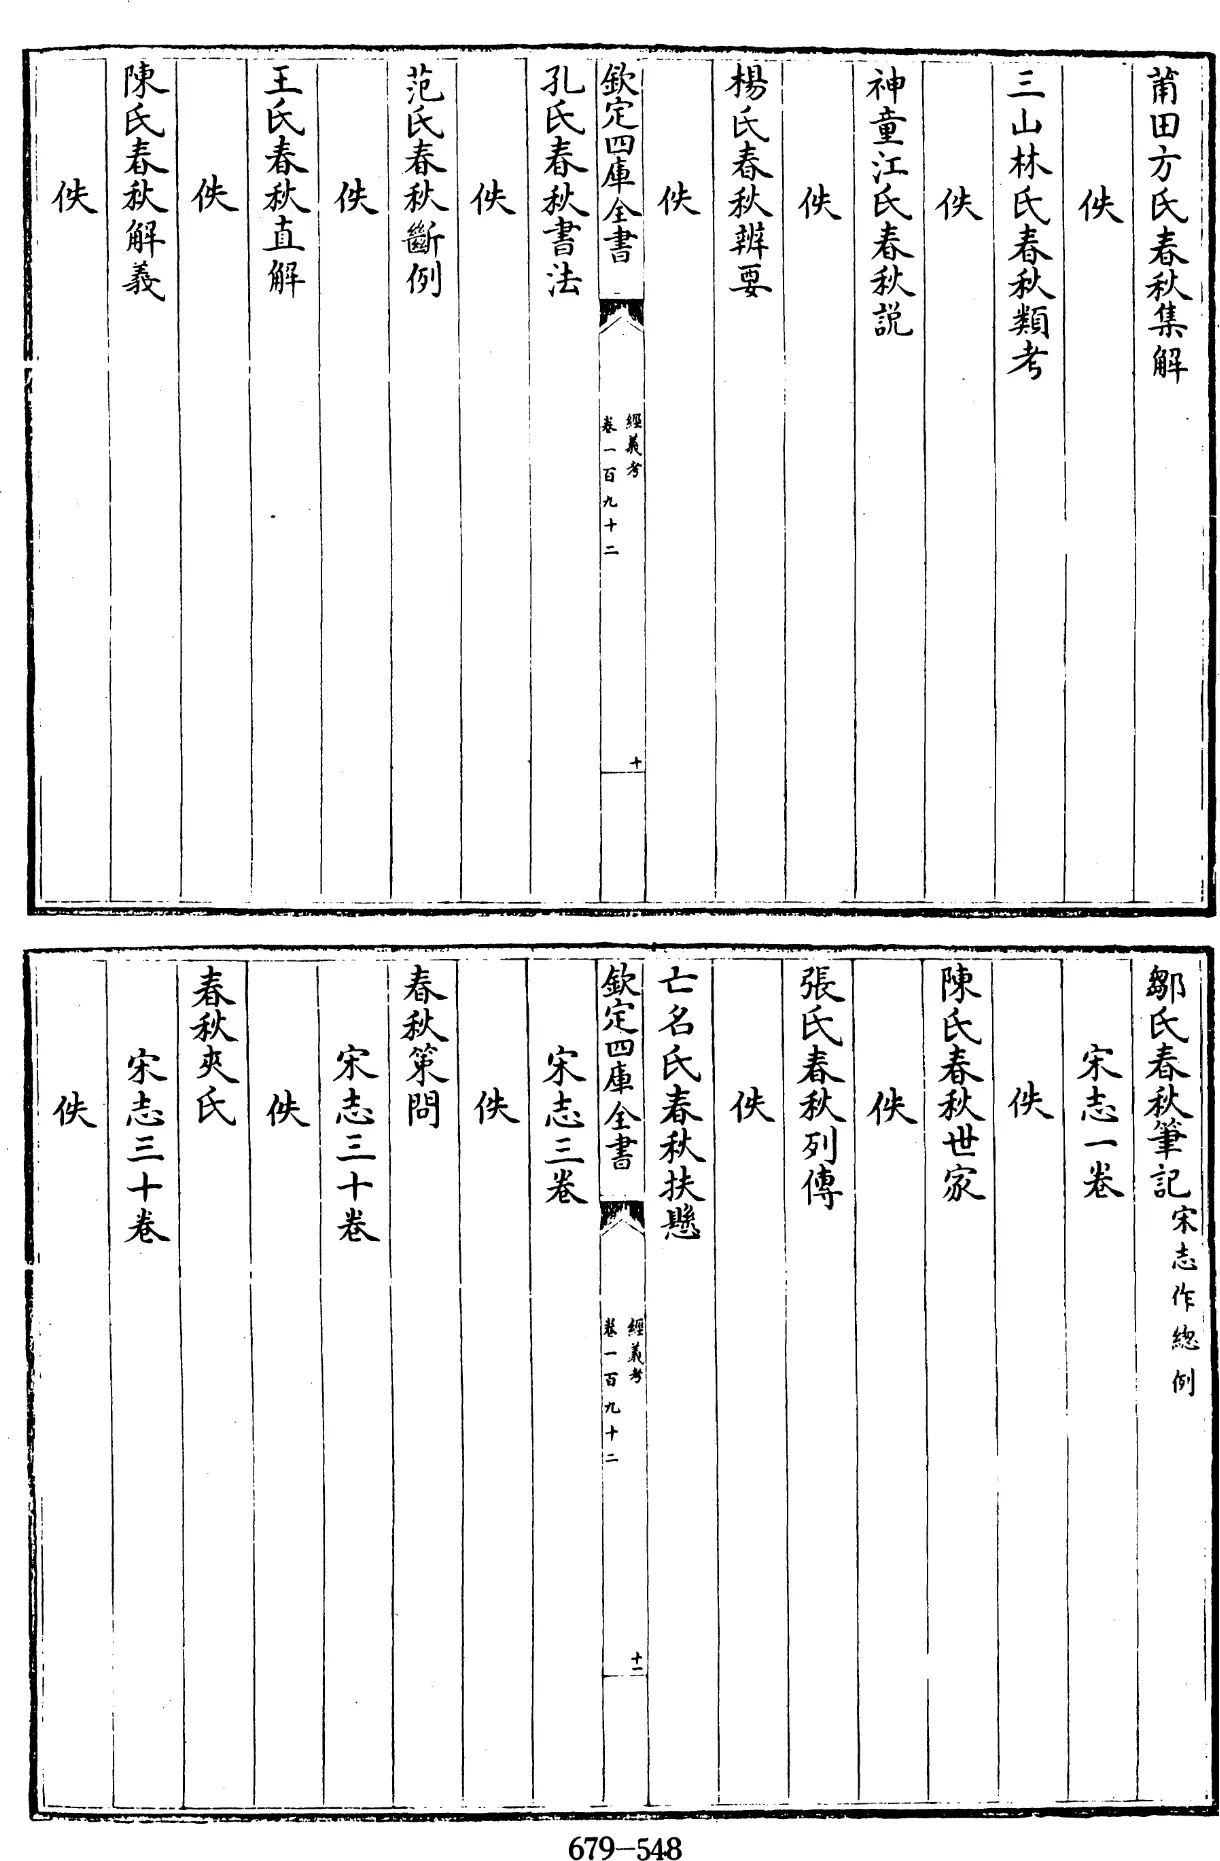 莆田方氏春秋集解
佚
三山林氏春秋類考
佚
神童江氏春秋説
佚
楊氏春秋辨要
佚
欽定四庫全書
經義考
卷一百九十二
十
孔氏春秋書法
佚
范氏春秋斷例
佚
王氏春秋直解
佚
陳氏春秋解義
佚
鄒氏春秋筆記宋志作總例
宋志一卷
佚
陳氏春秋世家
佚
張氏春秋列傳
佚
亡名氏春秋扶懸
欽定四庫全書
經義考
卷一百九十二
十一
宋志三卷
佚
春秋策問
宋志三十卷
佚
春秋夾氏
宋志三十卷
佚
679-548